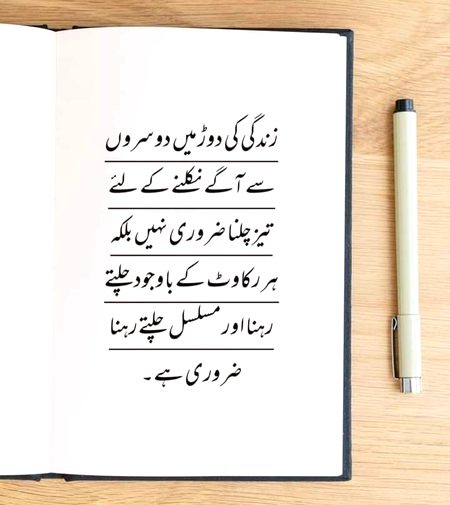 زندگی کی دوڑ میں دوسروں
سے آگے نکلنے کے لئے
تیز چلنا ضروری نہیں بلکہ
ہر رکاوٹ کے باوجود چلتے
رہنا اور مسلسل چلتے رہنا
ضروری ہے۔